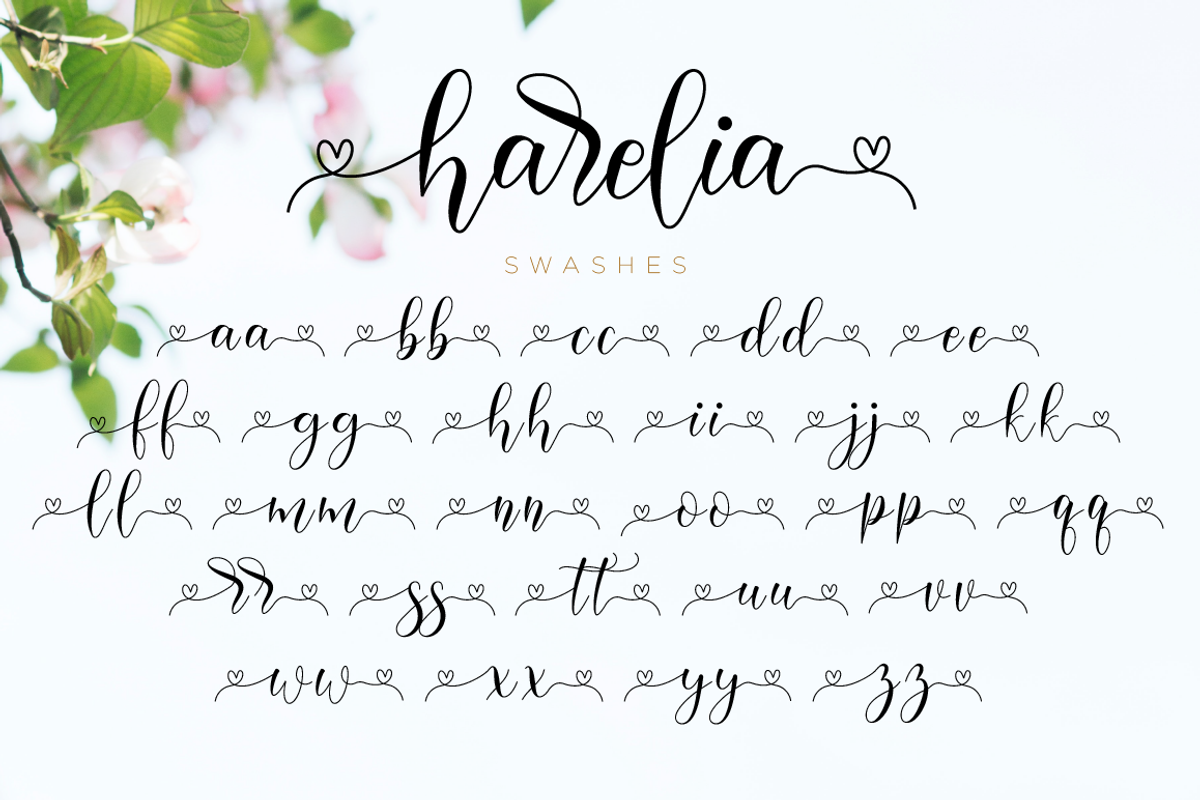 harelia
SWASHES
aa bb cc dd ee
ff gg hh ii jj kk
ll mm nn oo pp qq
rr ss tt uu vv
ww xx yy zz